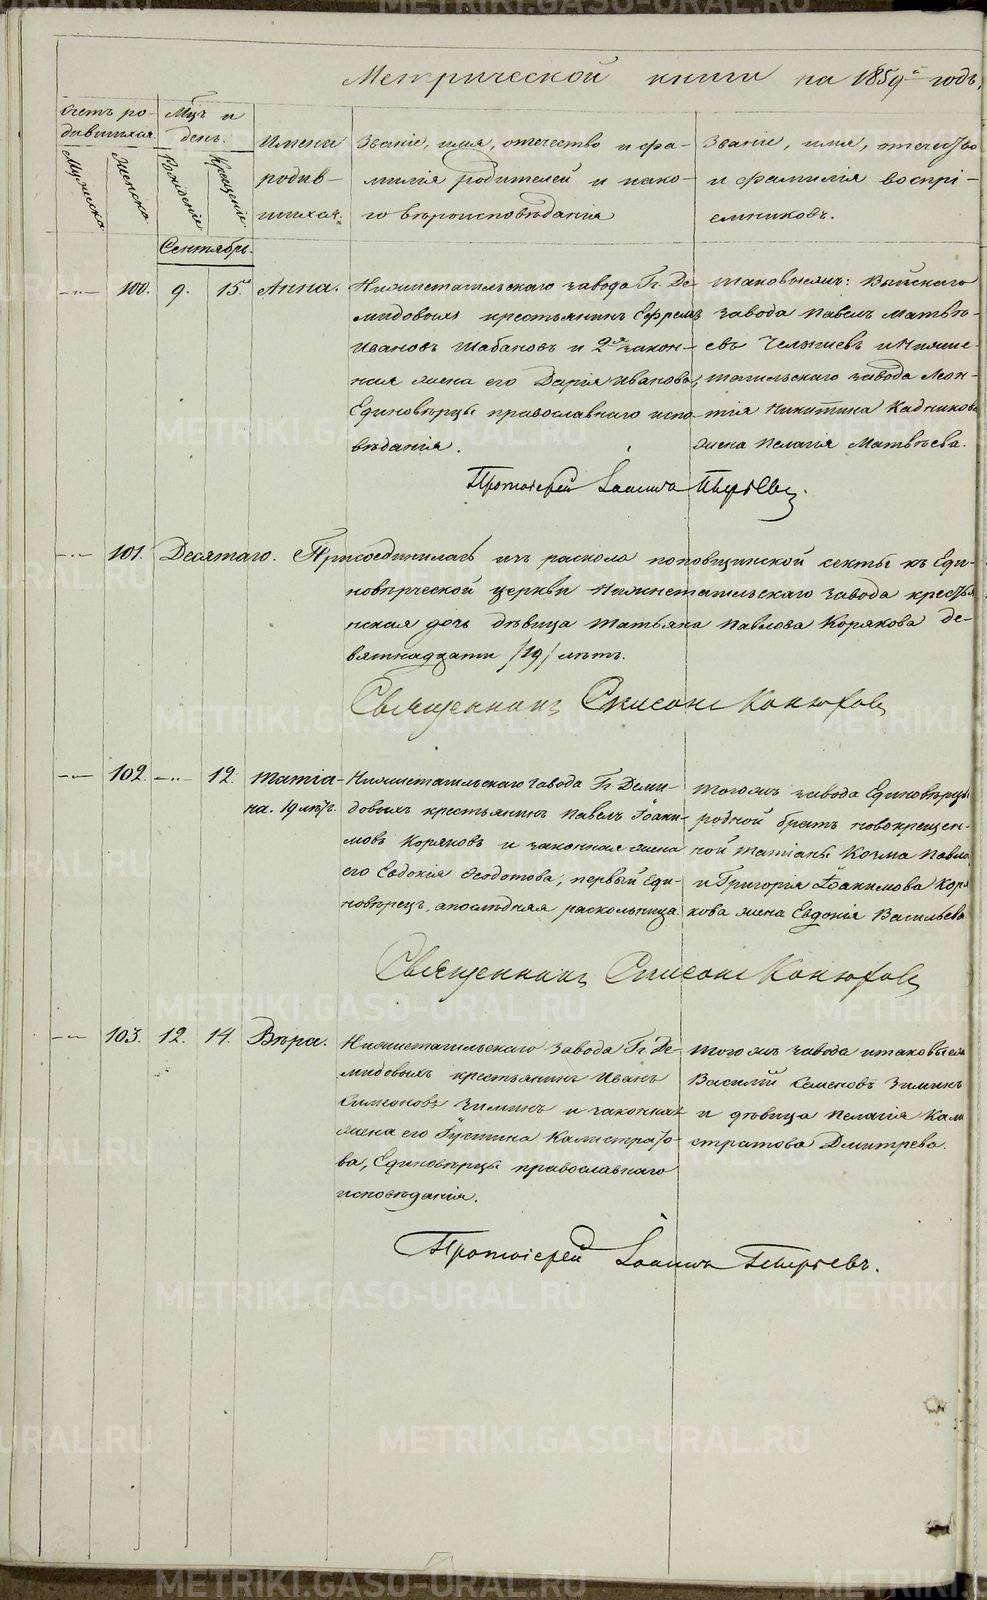 Метрической книги на 1859й годъ,
Счетъ ро-
дившихся
Мужска
Женска
Мцъ и
день.
Рожденіе
Крещеніе
Имена
родив-
шихся.
Званіе, имя, отчество и фа-
милія родителей и како-
го вѣроисповѣданія
Званіе, имя, отчество
и фамилія воспрі-
емниковъ.
Сентябрь.
100. 9. 15. Анна.
Нижнетагильскаго завода Гг. Де-
мидовыхъ крестьянинъ Ефремъ
Ивановъ Шабановъ и 2я закон-
ная жена его Дарія Иванова,
Единовѣрцы православнаго испо
вѣданія.
таковыежъ: Выйскаго
завода Павелъ Матвѣ-
евъ и Нижне-
тагильскаго завода Леон-
тія Никитина Кадникова
жена Пелагія Матвѣева.
Протоіерей Іоаннъ
101. Десятаго. Присоединилась изъ раскола поповщинской секты къ Еди-
новѣрческой церкви Нижнетагильскаго завода кресть
янская дочь дѣвица Татьяна Павлова Корякова де-
вятнадцати /19/ лѣтъ.
Священникъ Симеонъ Конюховъ
102. 12. Татіа-
на. 19 лѣтъ.
Нижнетагильскаго завода Гг. Деми-
довыхъ крестьянинъ Павелъ Іоаки-
мовъ Коряковъ и законная жена
его Евдокія Ѳеодотова, первый Еди-
новѣрецъ, а послѣдняя раскольница.
тогожъ завода Единовѣрцы
родной братъ новокрещен-
ной Татіаны Козма Павло
и Григорія Іоакимова Коря
кова жена Евдокія Васильева
Священникъ Симеонъ Конюховъ
103. 12. 14. Вѣра.
Нижнетагильскаго завода Гг. Де
мидовыхъ крестьянинъ Иванъ
Симеоновъ Зиминъ и законная
жена его Іустина Калистрато-
ва, Единовѣрцы православнаго
исповѣданія.
тогожъ завода и таковыежъ
Василій Семеновъ Зиминъ
и дѣвица Пелагія Кали
стратова Дмитрева.
Протоіерей Іоаннъ
METRIKI.GASO-URAL.RU